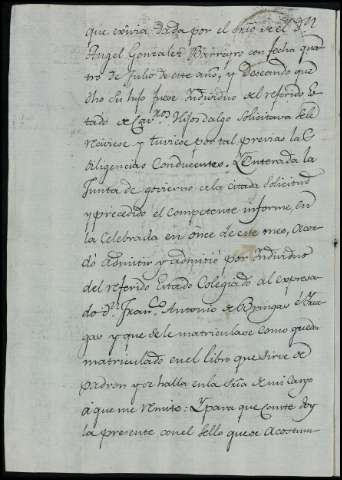 que exivia dada por el srio de el Y. D.n
Angel Gonzalez Barreyro con fecha qua
tro de Julio de este año, y Deseando que
dho su hijo fuese Individuo del referido Es
tado de Cav.ros Hijosdalgo solicitava se le
reciviese y tuviese por tal previas las
diligencias Conducentes. Y Enterada la
Junta de govierno de la citada Solicitud
y precedido el competente informe, en
la Celebrada en once de este mes, Acor
dó admitir y admitió por Individuo
del referido Estado Colegiado al expresa
do d.n Fran.co Antonio de Bringas y
y que se le matriculase como queda
matriculado en el libro que sirve de
padron y se halla en la Sria de mi cargo
á que me remito: Y para que conste doy
la presente con el Sello que se acostum-